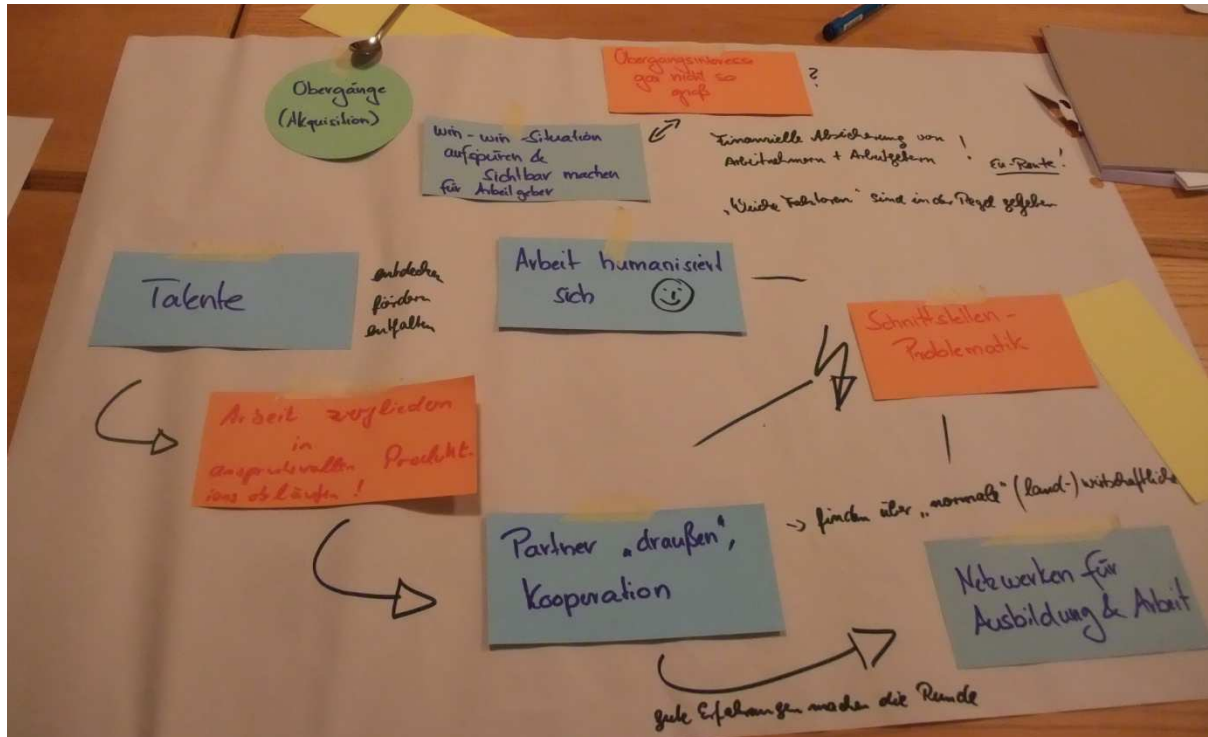 Übergänge
(Akquisition)
Übergangsinteresse
gar nicht so
groß
?
win-win-Situation
aufspüren &
sichtbar machen
für Arbeitgeber
Finanzielle Absicherung von
Arbeitnehmern + Arbeitgebern !
EU-Rente!
"Weiche Faktoren" sind in der Regel gegeben
Talente
entdecken
fördern
entfalten
Arbeit humanisiert
sich
Schnittstellen-
Problematik
Arbeit zergliedern
in
anspruchsvollen Produkt-
ionsabläufen!
Partner "draußen",
Kooperation
-> finden über "normale" (land-)wirtschaftliche
Netzwerken für
Ausbildung & Arbeit
gute Erfahrungen machen die Runde